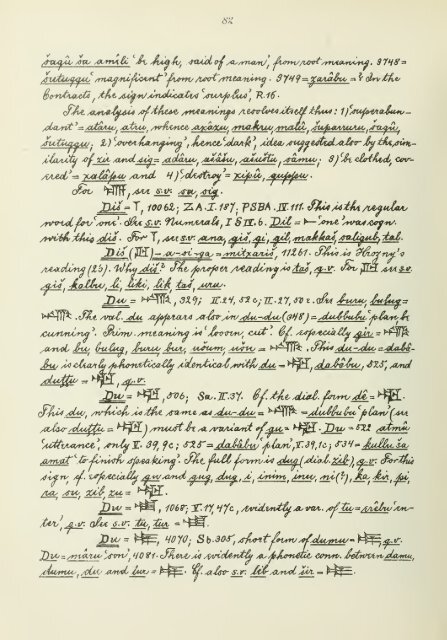 82
šaqû ša amîli 'be high, said of a man', from root meaning. 3748 =
šutuqqu 'magnificent' from root meaning. 3749 = xarâbu = ? In the
Contracts, the sign indicates 'surplus', R.16.
The analysis of these meanings resolves itself thus: 1) 'superabun-
dant' = atâru, atru, whence axâzu, makru, malû, šuparruru, šaqû,
šutuqqu; 2) 'overhanging', hence 'dark', idea suggested also by the sim-
ilarity of zir and sig = adâru, ašâbu, ašuštu, sâmu; 3) 'be clothed, cov-
ered' = xalâpu and 4) 'destroy' = xipû, quppu.
For see s.v. sa, sig.
Diš = 10062; Z.A. I. 187; PSBA. IV. 111. This is the regular
word for 'one'. See s.v. Numerals, I § IV. 6. Dil = 'one' was cogn.
with this diš. For see s.v. ana, giš, gi, gil, makkaš, saligub, tal.
Diš ( ) = a-si-ga = mitxariš, 11261. This is Hrozny's
reading (25). Why diš? The proper reading is taš, q.v. For see s.v.
giš, kalbu, li, liki, lik, taš, uru.
Du = 329; II. 24, 52 c; II. 27, 50 e. See buru, bulug =
The val. du appears also in du-du (348) = dubbubu 'plan, be
cunning'. Prim. meaning is 'loosen, cut'. Cf. especially gir =
and bu, bulug, buru, bur, ušum, ušu = This du-du = dabâ-
bu is clearly phonetically identical with du = dabâbu, 525, and
duttu = q.v.
Du = 506; Sa. II. 37. Cf. the dial. form dê =
This du, which is the same as du-du = = dubbubu 'plan' (see
also duttu = ) must be a variant of gu = Du = 522 atmû
'utterance', only V. 39, 9c; 525 = dabâbu 'plan', V. 39, 1c; 534 = kullu ša
amat 'to finish speaking'. The full form is dug (dial. zib), q.v. For this
sign cf. especially gu and gug, dug, i, inim, inu, ni(?), ka, kir, pi,
ra, su, zib, zu =
Du = 1068; V. 17, 47c, evidently a var. of tu = erêbu 'en-
ter', q.v. See s.v. tu, tur =
Du = 4070; Sb. 305, short form of dumu = q.v.
Du = mâru 'son', 4081. There is evidently a phonetic conn. between damu,
dumu, du and tur = Cf. also s.v. and